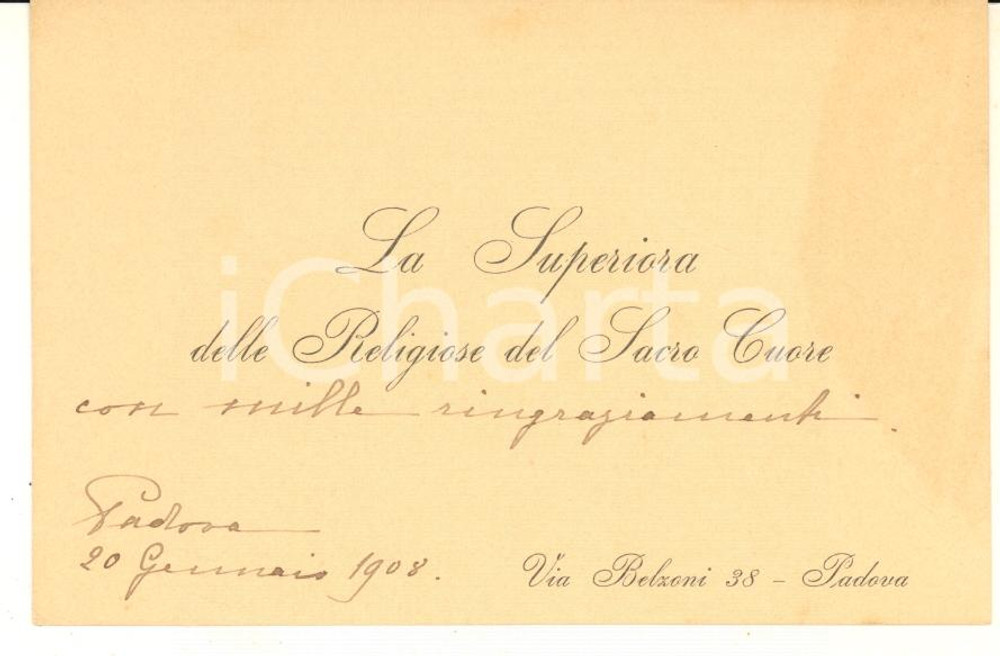 La Superiora
delle Religiose del Sacro Cuore
con mille ringraziamenti.
Padova
20 Gennaio 1908.
Via Belzoni 38 - Padova
iCharta